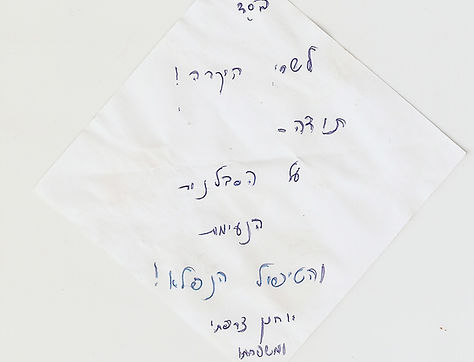 בס"ד
לשרי היקרה!
תודה-
על הסבלנות
הנעימות
והטיפול הנפלא!
צרפתי
ומשפחתו